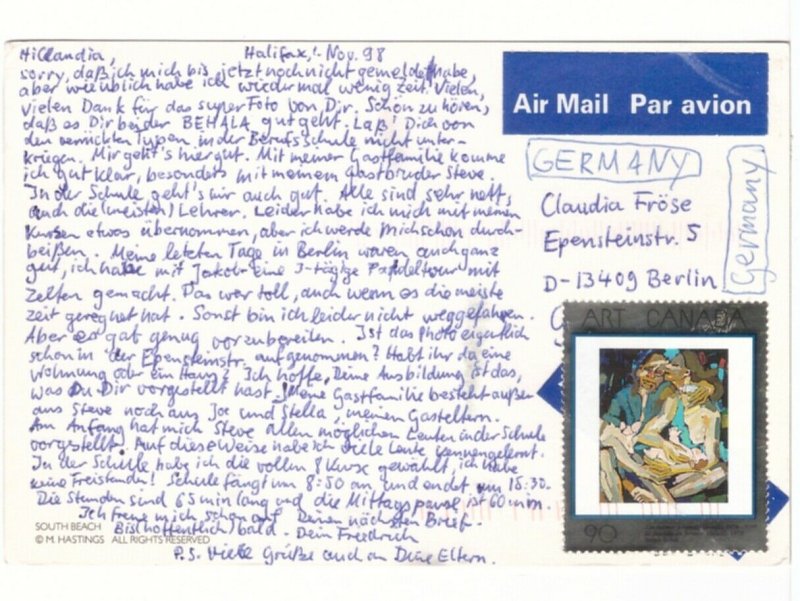 Hi Claudia, Halifax, 1. Nov. 98
sorry, daß ich mich bis jetzt noch nicht gemeldet habe,
aber wie üblich habe ich wieder mal wenig Zeit. Vielen,
vielen Dank für das super Foto von Dir. Schön zu hören,
daß es Dir bei der BEHALA gut geht. Laß' Dich von
den verrückten Typen in der Berufsschule nicht unter-
kriegen. Mir geht's hier gut. Mit meiner Gastfamilie komme
ich gut klar, besonders mit meinem Gastbruder Steve.
In der Schule geht's mir auch gut. Alle sind sehr nett,
auch die (meisten) Lehrer. Leider habe ich mich mit meinen
Kursen etwas übernommen, aber ich werde mich schon durch-
beißen. Meine letzten Tage in Berlin waren auch ganz
gut, ich habe mit Jakob eine 3-tägige Paddeltour mit
Zelten gemacht. Das war toll, auch wenn es die meiste
Zeit geregnet hat. Sonst bin ich leider nicht weggefahren.
Aber es gab genug vorzubereiten. Ist das Photo eigentlich
schon in der Epensteinstr. aufgenommen? Habt ihr da eine
Wohnung oder ein Haus? Ich hoffe, Deine Ausbildung ist das,
was Du Dir vorgestellt hast. Meine Gastfamilie besteht außer
aus Steve noch aus Joe und Stella, meinen Gasteltern.
Am Anfang hat mich Steve allen möglichen Leuten in der Schule
vorgestellt. Auf diese Weise habe ich viele Leute kennengelernt.
In der Schule habe ich die vollen 8 Kurse gewählt, ich habe
keine Freistunden! Schule fängt um 8:50 an und endet um 15:30.
Die Stunden sind 65 min lang und die Mittagspause ist 60 min.
Ich freue mich schon auf Deinen nächsten Brief.
Bis (hoffentlich) bald. Dein Freedrich
P.S. Viele Grüße auch an Deine Eltern.
SOUTH BEACH
© M. HASTINGS ALL RIGHTS RESERVED
Air Mail Par avion
GERMANY
Germany
Claudia Fröse
Epensteinstr. 5
D-13409 Berlin
ART CANADA
90